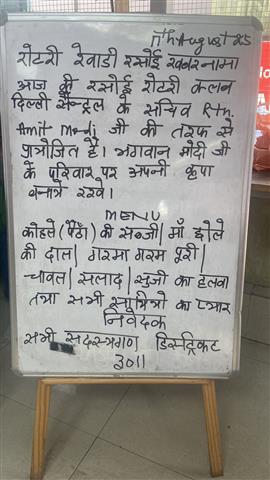 7th August 25
रोटरी रेवाडी रसोई खबरनामा
आज की रसोई रोटरी क्लब
दिल्ली सेन्ट्रल के सचिव Rtn.
Amit Modi जी की तरफ से
प्रायोजित है। भगवान मोदी जी
के परिवार पर अपनी कृपा
बनाये रखे।
MENU
कोहले (पेठा) की सब्जी। माँ छोले
की दाल। गरमा गरम पूरी।
चावल। सलाद। सुजी का हलवा
तथा सभी साथियो का प्यार
निवेदक
सभी सदस्यगण डिस्ट्रिकट
3011